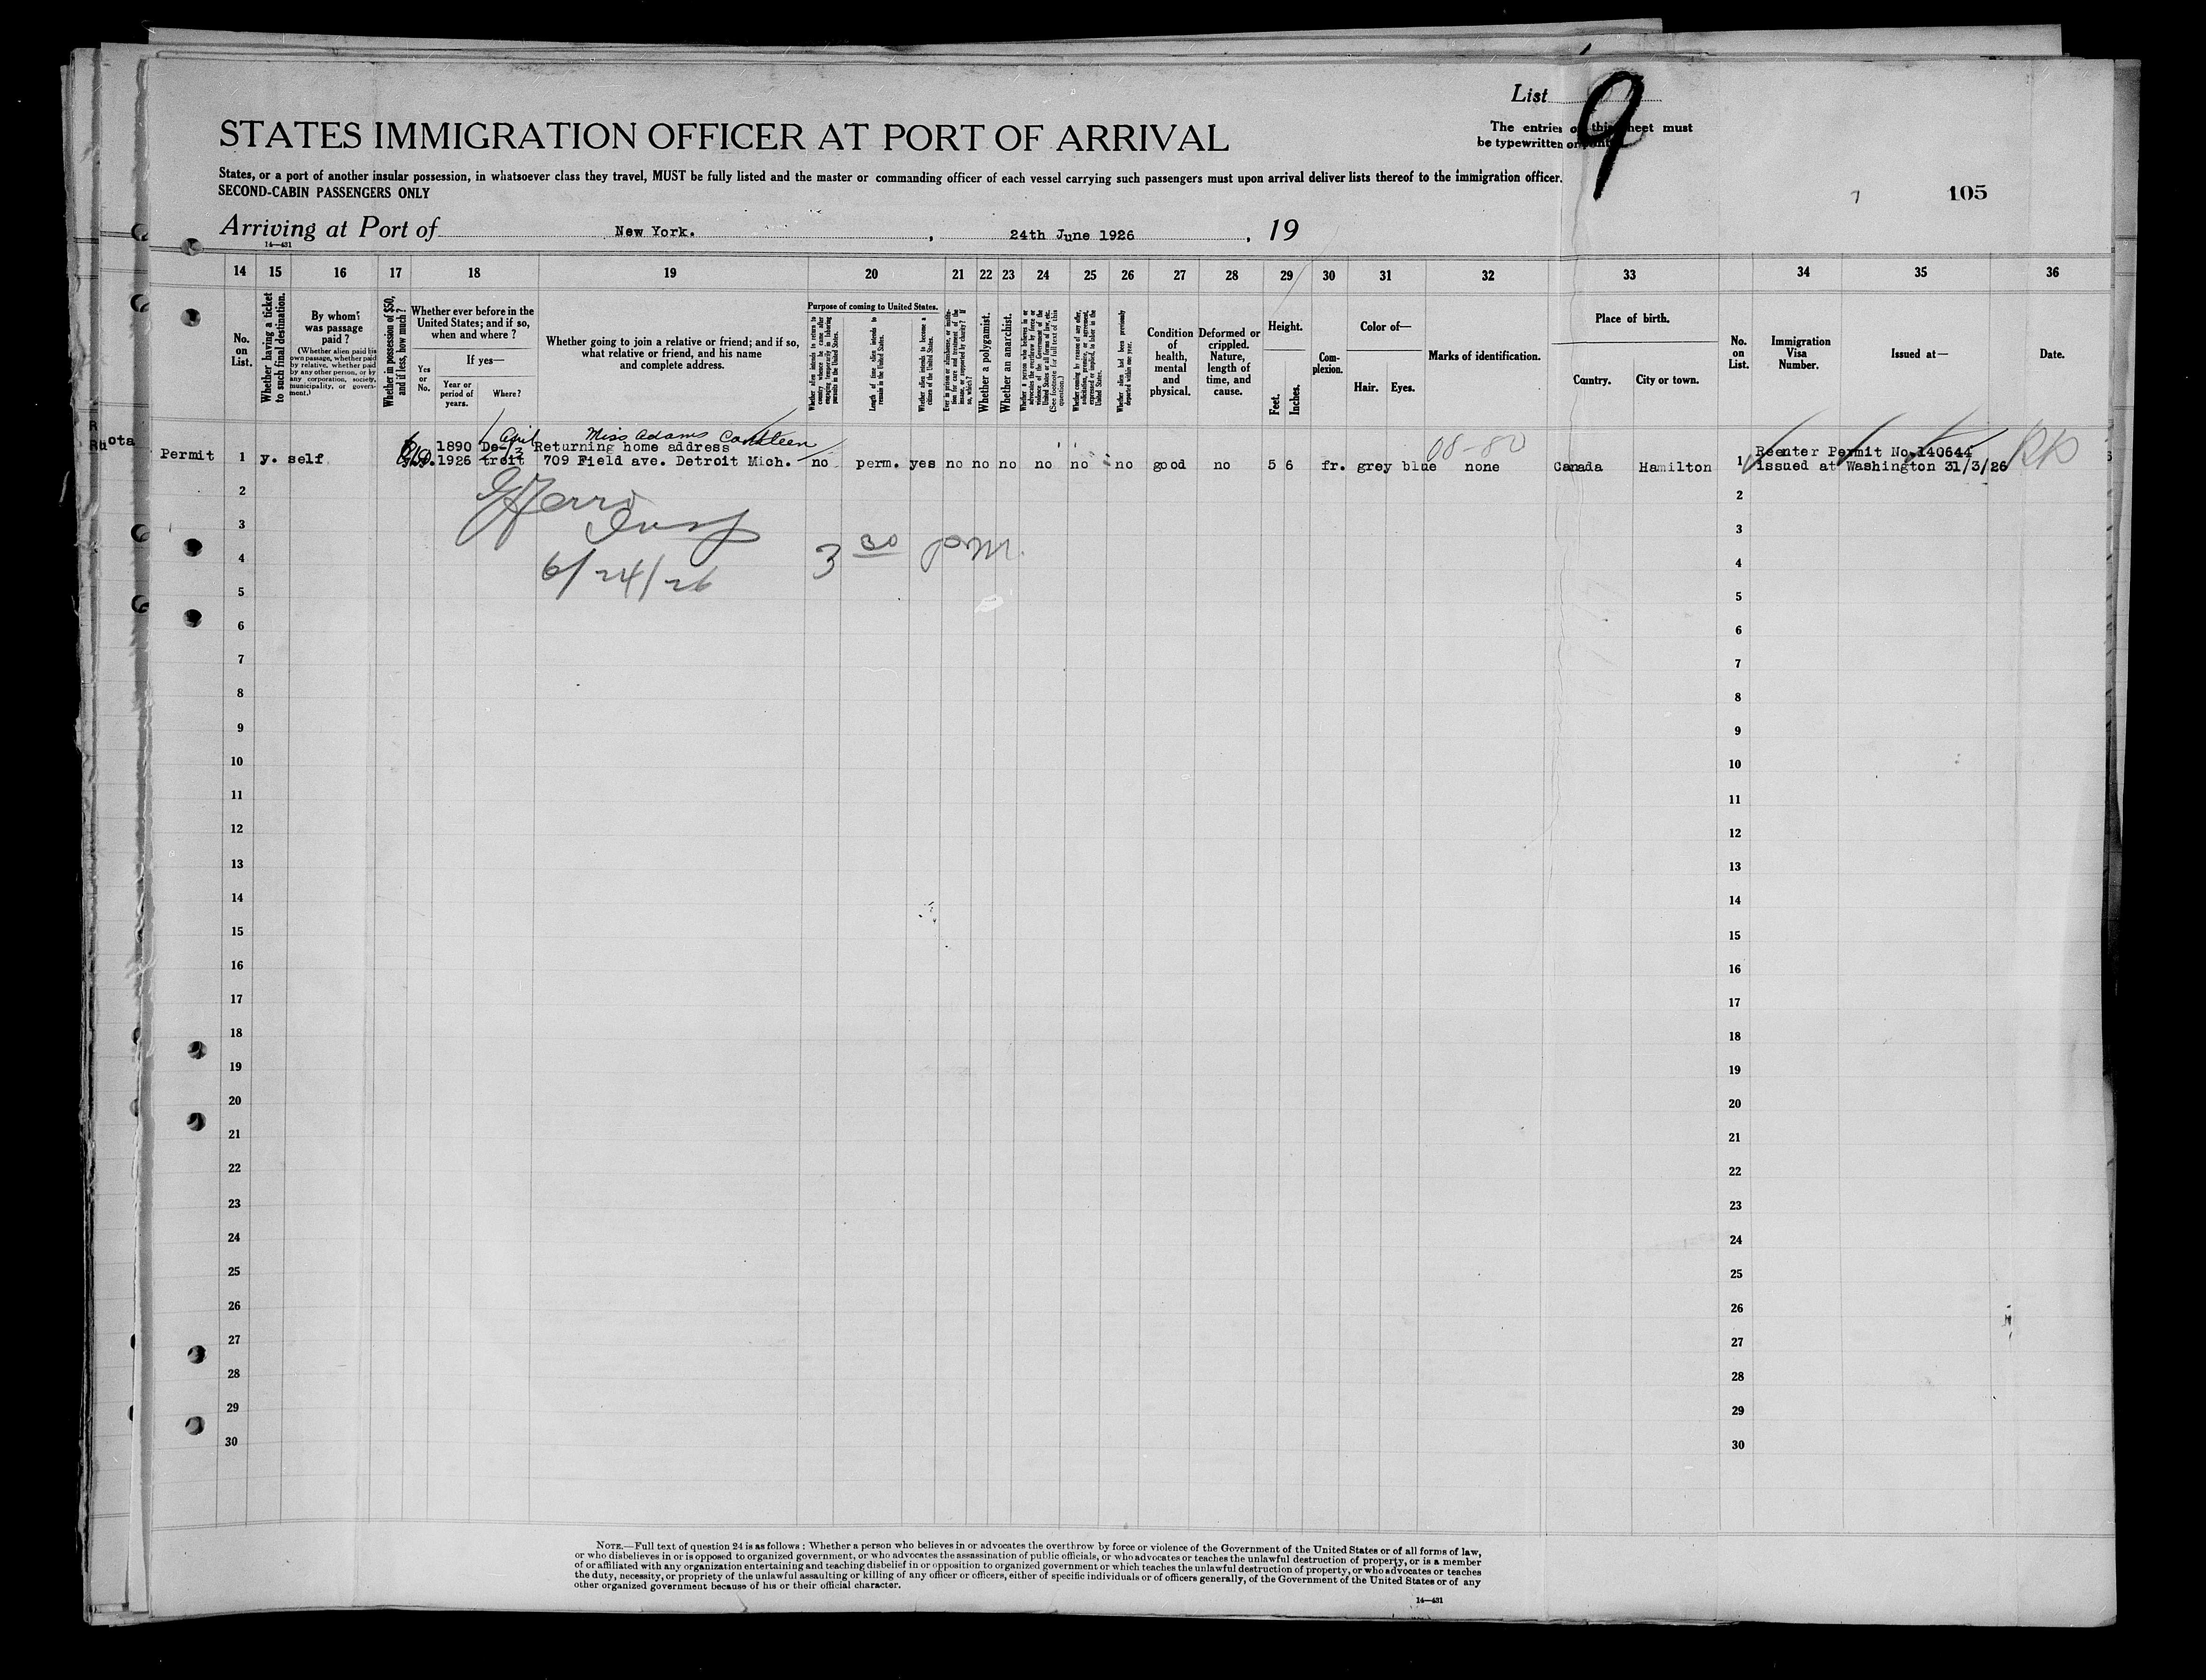 List 9
STATES IMMIGRATION OFFICER AT PORT OF ARRIVAL
The entries on this sheet must
be typewritten or
States, or a port of another insular possession, in whatsoever class they travel, MUST be fully listed and the master or commanding officer of each vessel carrying such passengers must upon arrival deliver lists thereof to the immigration officer.
SECOND-CABIN PASSENGERS ONLY
105
Arriving at Port of New York. , 24th June 1926 , 19
14—431
14 15 16 17 18 19 20 21 22 23 24 25 26 27 28 29 30 31 32 33 34 35 36
No. on List.
Whether having a ticket to such final destination.
By whom was passage paid?
(Whether alien paid his own passage, whether paid by relative, whether paid by any other person, or by any corporation, society, municipality, or government.)
Whether in possession of $50, and if less, how much?
Whether ever before in the United States; and if so, when and where?
Yes or No.
If yes—
Year or period of years.
Where?
Whether going to join a relative or friend; and if so, what relative or friend, and his name and complete address.
Purpose of coming to United States.
Whether alien intends to return to country whence he came after engaging temporarily in laboring pursuits in the United States.
Length of time alien intends to remain in the United States.
Whether alien intends to become a citizen of the United States.
Ever in prison or almshouse, or institution for care and treatment of the insane, or supported by charity? If so, which?
Whether a polygamist.
Whether an anarchist.
Whether a person who believes in or advocates the overthrow by force or violence of the Government of the United States or all forms of law, etc. (See footnote for full text of this question.)
Whether coming by reason of any offer, solicitation, promise, or agreement, expressed or implied, to labor in the United States.
Whether alien had been previously deported within one year.
Condition of health, mental and physical.
Deformed or crippled. Nature, length of time, and cause.
Height.
Feet. Inches.
Complexion.
Color of—
Hair. Eyes.
Marks of identification.
Place of birth.
Country. City or town.
No. on List.
Immigration Visa Number.
Issued at—
Date.
April Miss Adams
1890 De- Returning home address 08-80 Reenter Permit No.140644
Permit 1 y. self 1926 troit 709 Field ave. Detroit Mich. no perm. yes no no no no no no good no 5 6 fr. grey blue none Canada Hamilton 1 issued at Washington 31/3/26
2 2
3 3
3 30 pm.
4 4
6/24/26
5 5
6 6
7 7
8 8
9 9
10 10
11 11
12 12
13 13
14 14
15 15
16 16
17 17
18 18
19 19
20 20
21 21
22 22
23 23
24 24
25 25
26 26
27 27
28 28
29 29
30 30
NOTE.—Full text of question 24 is as follows: Whether a person who believes in or advocates the overthrow by force or violence of the Government of the United States or of all forms of law,
or who disbelieves in or is opposed to organized government, or who advocates the assassination of public officials, or who advocates or teaches the unlawful destruction of property, or is a member
of or affiliated with any organization entertaining and teaching disbelief in or opposition to organized government or which teaches the unlawful destruction of property, or who advocates or teaches
the duty, necessity, or propriety of the unlawful assaulting or killing of any officer or officers, either of specific individuals or of officers generally, of the Government of the United States or of any
other organized government because of his or their official character.
14—431